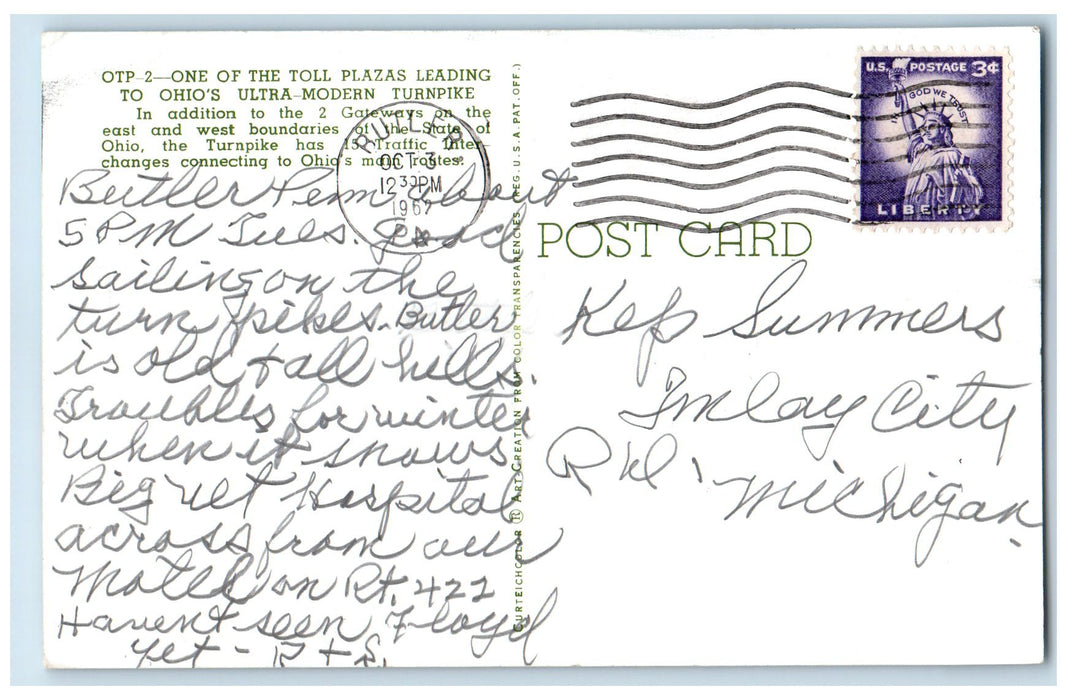 OTP-2—ONE OF THE TOLL PLAZAS LEADING
TO OHIO'S ULTRA-MODERN TURNPIKE
In addition to the 2 Gateways on the
east and west boundaries of the State of
Ohio, the Turnpike has 15 Traffic Inter-
changes connecting to Ohio's main routes.
BUTLER
OCT 3
12 30 PM
PA
U.S. POSTAGE 3¢
IN GOD WE TRUST
LIBERTY
POST CARD
CURTEICHCOLOR ® ART-CREATION FROM COLOR TRANSPARENCIES (REG. U.S.A. PAT. OFF.)
Butler Penn about
5 PM Tues. Good
sailing on the
turn pikes. Butler
is old & all hills.
Troubles for winter
when it snows
Big vet Hospital
across from our
Motel on Rt. 422
Havent seen Floyd
yet - R + S.
Kep Summers
Imlay City
Rd. Michigan